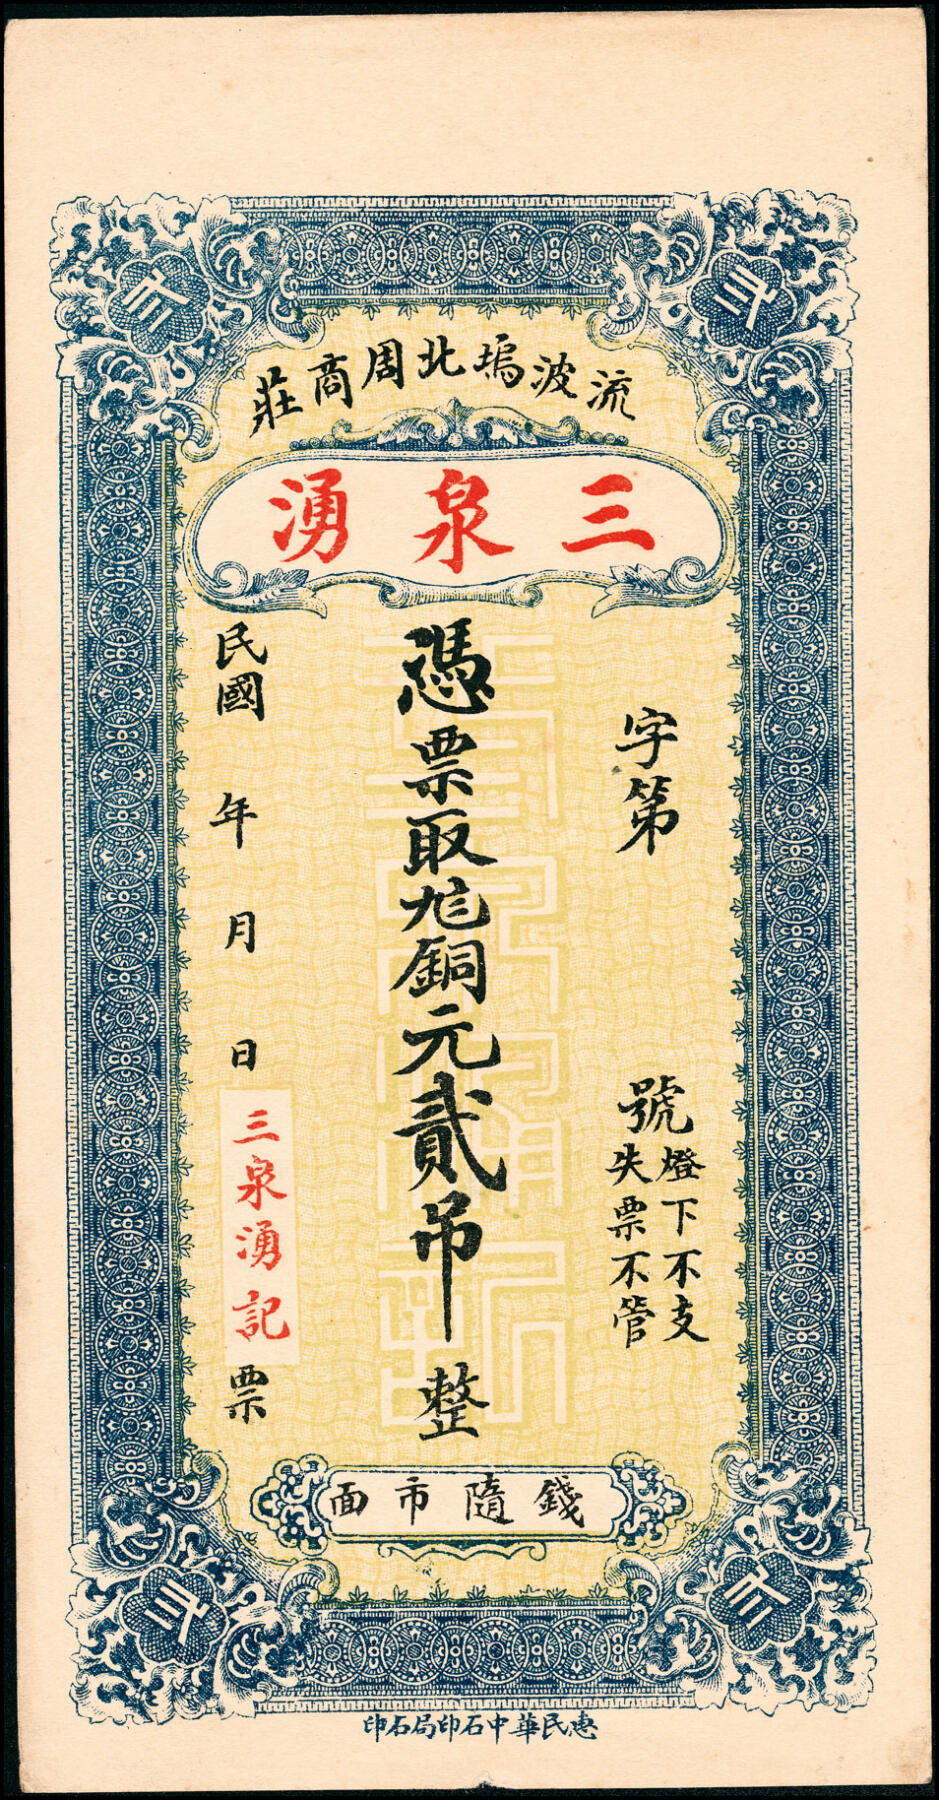 弍
弍
流波塢北周商莊
三泉湧
字第 號
燈下不支
失票不管
憑票取銅元貳吊整
民國 年 月 日 三泉湧記票
錢隨市面
弍
弍
惠民華中石印局石印